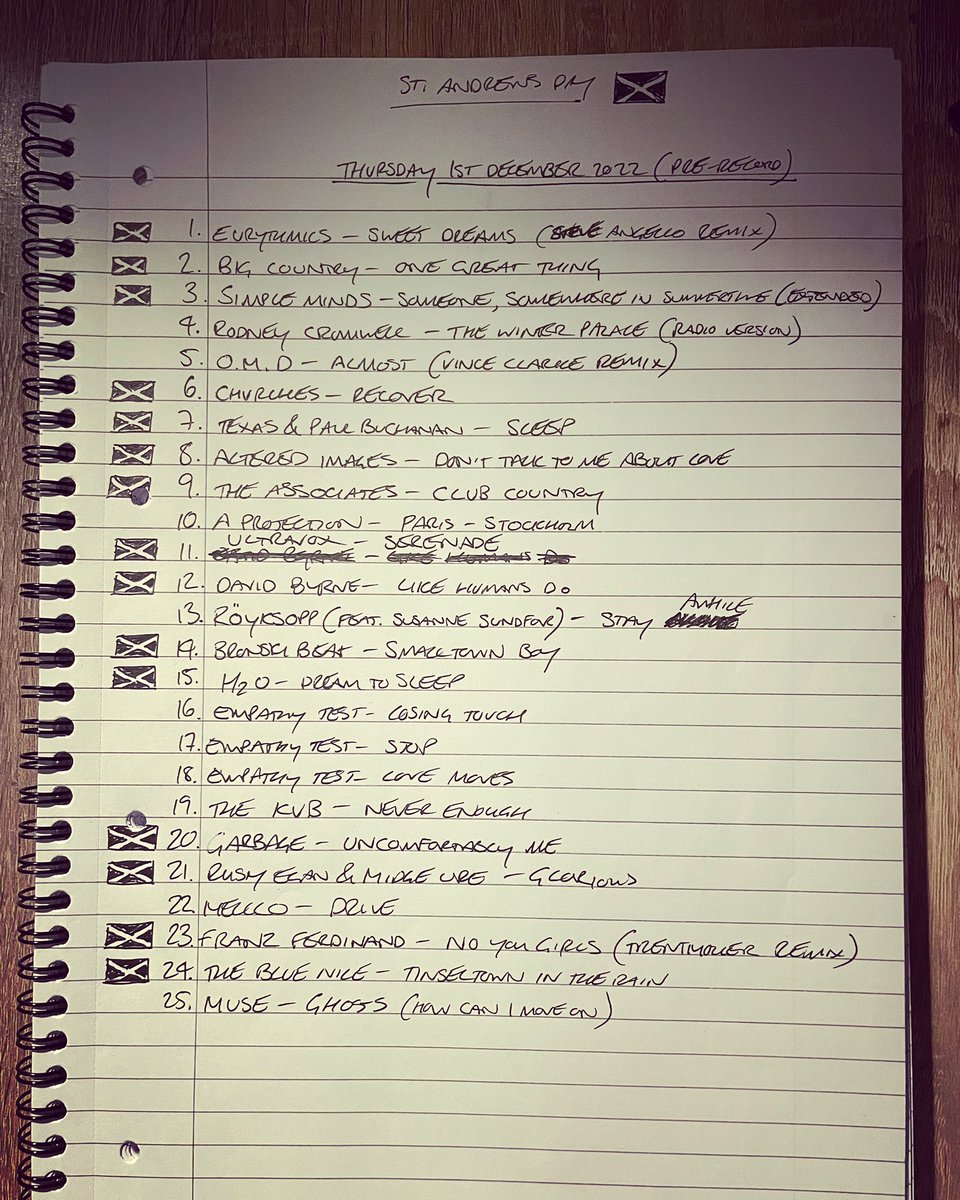 ST. ANDREWS DAY
THURSDAY 1ST DECEMBER 2022 (PRE-RECORD)
1. EURYTHMICS - SWEET DREAMS (STEVE ANGELLO REMIX)
2. BIG COUNTRY - ONE GREAT THING
3. SIMPLE MINDS - SOMEONE, SOMEWHERE IN SUMMERTIME (EXTENDED)
4. RODNEY CROMWELL - THE WINTER PALACE (RADIO VERSION)
5. O.M.D - ALMOST (VINCE CLARKE REMIX)
6. CHVRCHES - RECOVER
7. TEXAS & PAUL BUCHANAN - SLEEP
8. ALTERED IMAGES - DON'T TALK TO ME ABOUT LOVE
9. THE ASSOCIATES - CLUB COUNTRY
10. A PROJECTION - PARIS - STOCKHOLM
ULTRAVOX - SERENADE
11. DAVID BYRNE - LIKE HUMANS DO
12. DAVID BYRNE - LIKE HUMANS DO
AWHILE
13. RÖYKSOPP (FEAT. SUSANNE SUNDFOR) - STAY
14. BRONSKI BEAT - SMALLTOWN BOY
15. H2O - DREAM TO SLEEP
16. EMPATHY TEST - LOSING TOUCH
17. EMPATHY TEST - STOP
18. EMPATHY TEST - LOVE MOVES
19. THE KVB - NEVER ENOUGH
20. GARBAGE - UNCOMFORTABLY ME
21. RUSTY EGAN & MIDGE URE - GLORIOUS
22. MELLLO - DRIVE
23. FRANZ FERDINAND - NO YOU GIRLS (TRENTMOLLER REMIX)
24. THE BLUE NILE - TINSELTOWN IN THE RAIN
25. MUSE - GHOSTS (HOW CAN I MOVE ON)